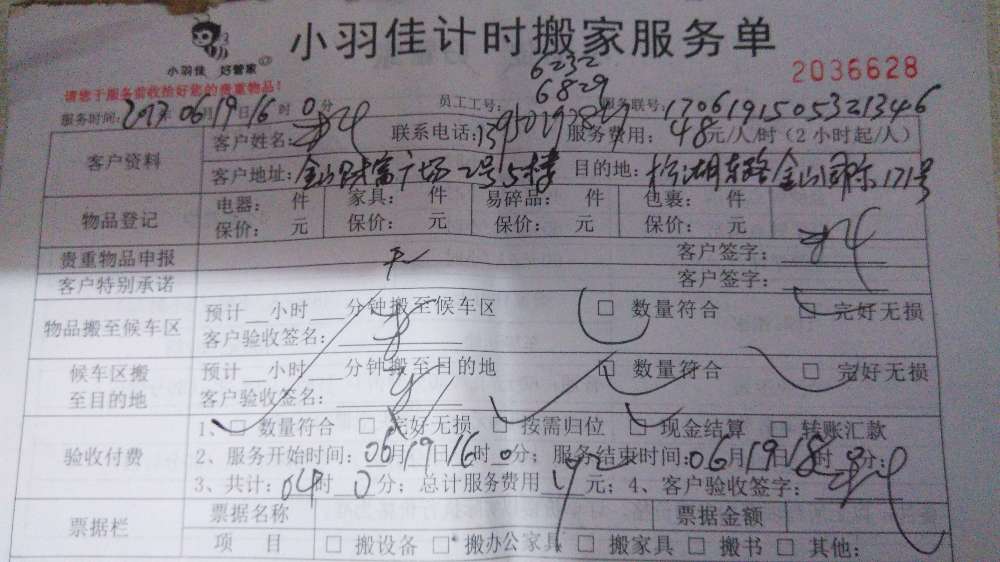 小羽佳计时搬家服务单
小羽佳 好管家
2036628
请您于服务前收拾好您的贵重物品！
6232
6829
服务时间：2017年06月19日16时0分 员工工号： 服务联号：1706191505321346
客户资料
客户姓名： 联系电话： 服务费用：48元/人/时（2小时起/人）
客户地址：金山财富广场2号5楼 目的地：东路金山国际171号
物品登记
电器： 件 家具： 件 易碎品： 件 包裹： 件
保价： 元 保价： 元 保价： 元 保价： 元
贵重物品申报 无 客户签字：
客户特别承诺 客户签字：
物品搬至候车区
预计__小时___分钟搬至候车区 □ 数量符合 □ 完好无损
客户验收签名：
候车区搬
至目的地
预计__小时___分钟搬至目的地 □ 数量符合 □ 完好无损
客户验收签名：
验收付费
1、□ 数量符合 □ 完好无损 □ 按需归位 □ 现金结算 □ 转账汇款
2、服务开始时间：06月19日16时0分；服务结束时间：06月19日18时 分；
3、共计：04时0分；总计服务费用 元；4、客户验收签字：
票据栏
票据名称 票据金额
项 目 □ 搬设备 □ 搬办公家具 □ 搬家具 □ 搬书 □ 其他：